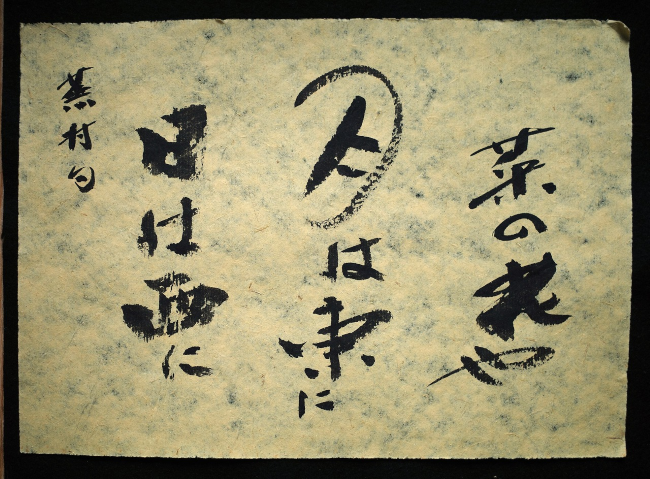 菜の花や
月は東に
日は西に
蕪村句